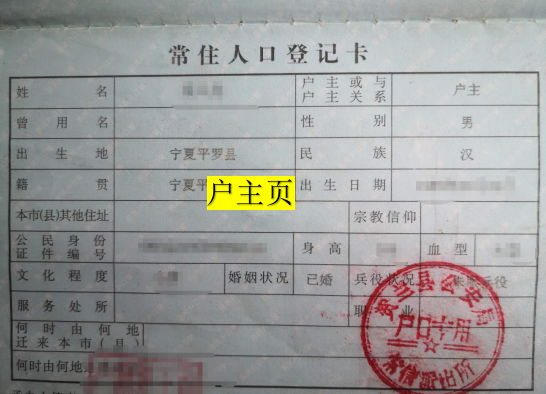 常住人口登记卡
姓名 户主或与户主关系 户主
曾用名 性别 男
出生地 宁夏平罗县 民族 汉
籍贯 宁夏平 户主页 出生日期
本市(县)其他住址 宗教信仰
公民身份证件编号 身高 血型
文化程度 婚姻状况 已婚 兵役状况 兵役
服务处所 职业
何时由何地迁来本市(县)
何时由何地
县公安局
户口专用
派出所